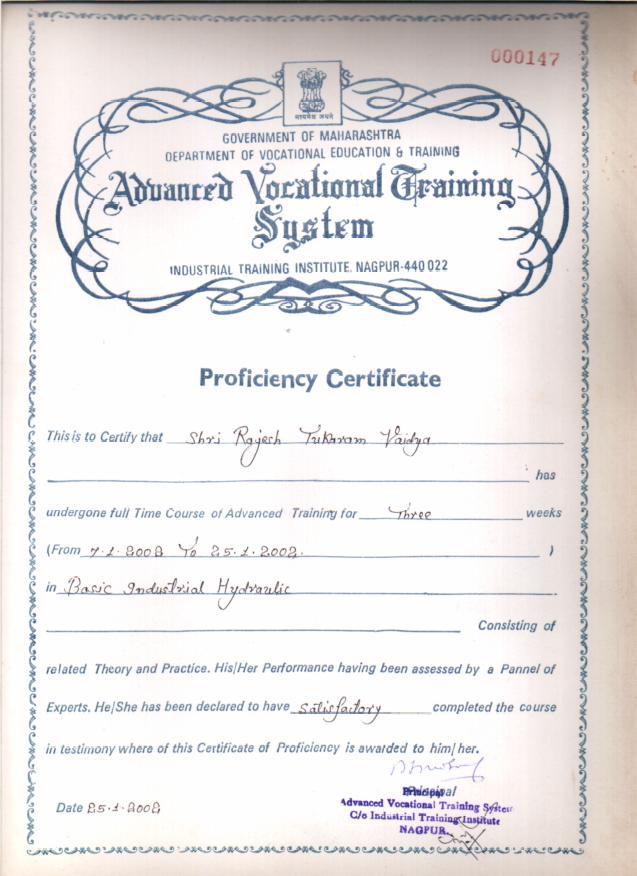 000147
सत्यमेव जयते
GOVERNMENT OF MAHARASHTRA
DEPARTMENT OF VOCATIONAL EDUCATION & TRAINING
Advanced Vocational Training
System
INDUSTRIAL TRAINING INSTITUTE, NAGPUR-440 022
Proficiency Certificate
This is to Certify that Shri Rajesh Tukaram Vaidya
has
undergone full Time Course of Advanced Training for Three weeks
(From 7.1.2002 To 25.1.2002. )
in Basic Industrial Hydraulic
Consisting of
related Theory and Practice. His/Her Performance having been assessed by a Pannel of
Experts. He/She has been declared to have Satisfactory completed the course
in testimony where of this Certificate of Proficiency is awarded to him/her.
Principal
Advanced Vocational Training System
C/o Industrial Training Institute
NAGPUR.
Date 25.1.2002